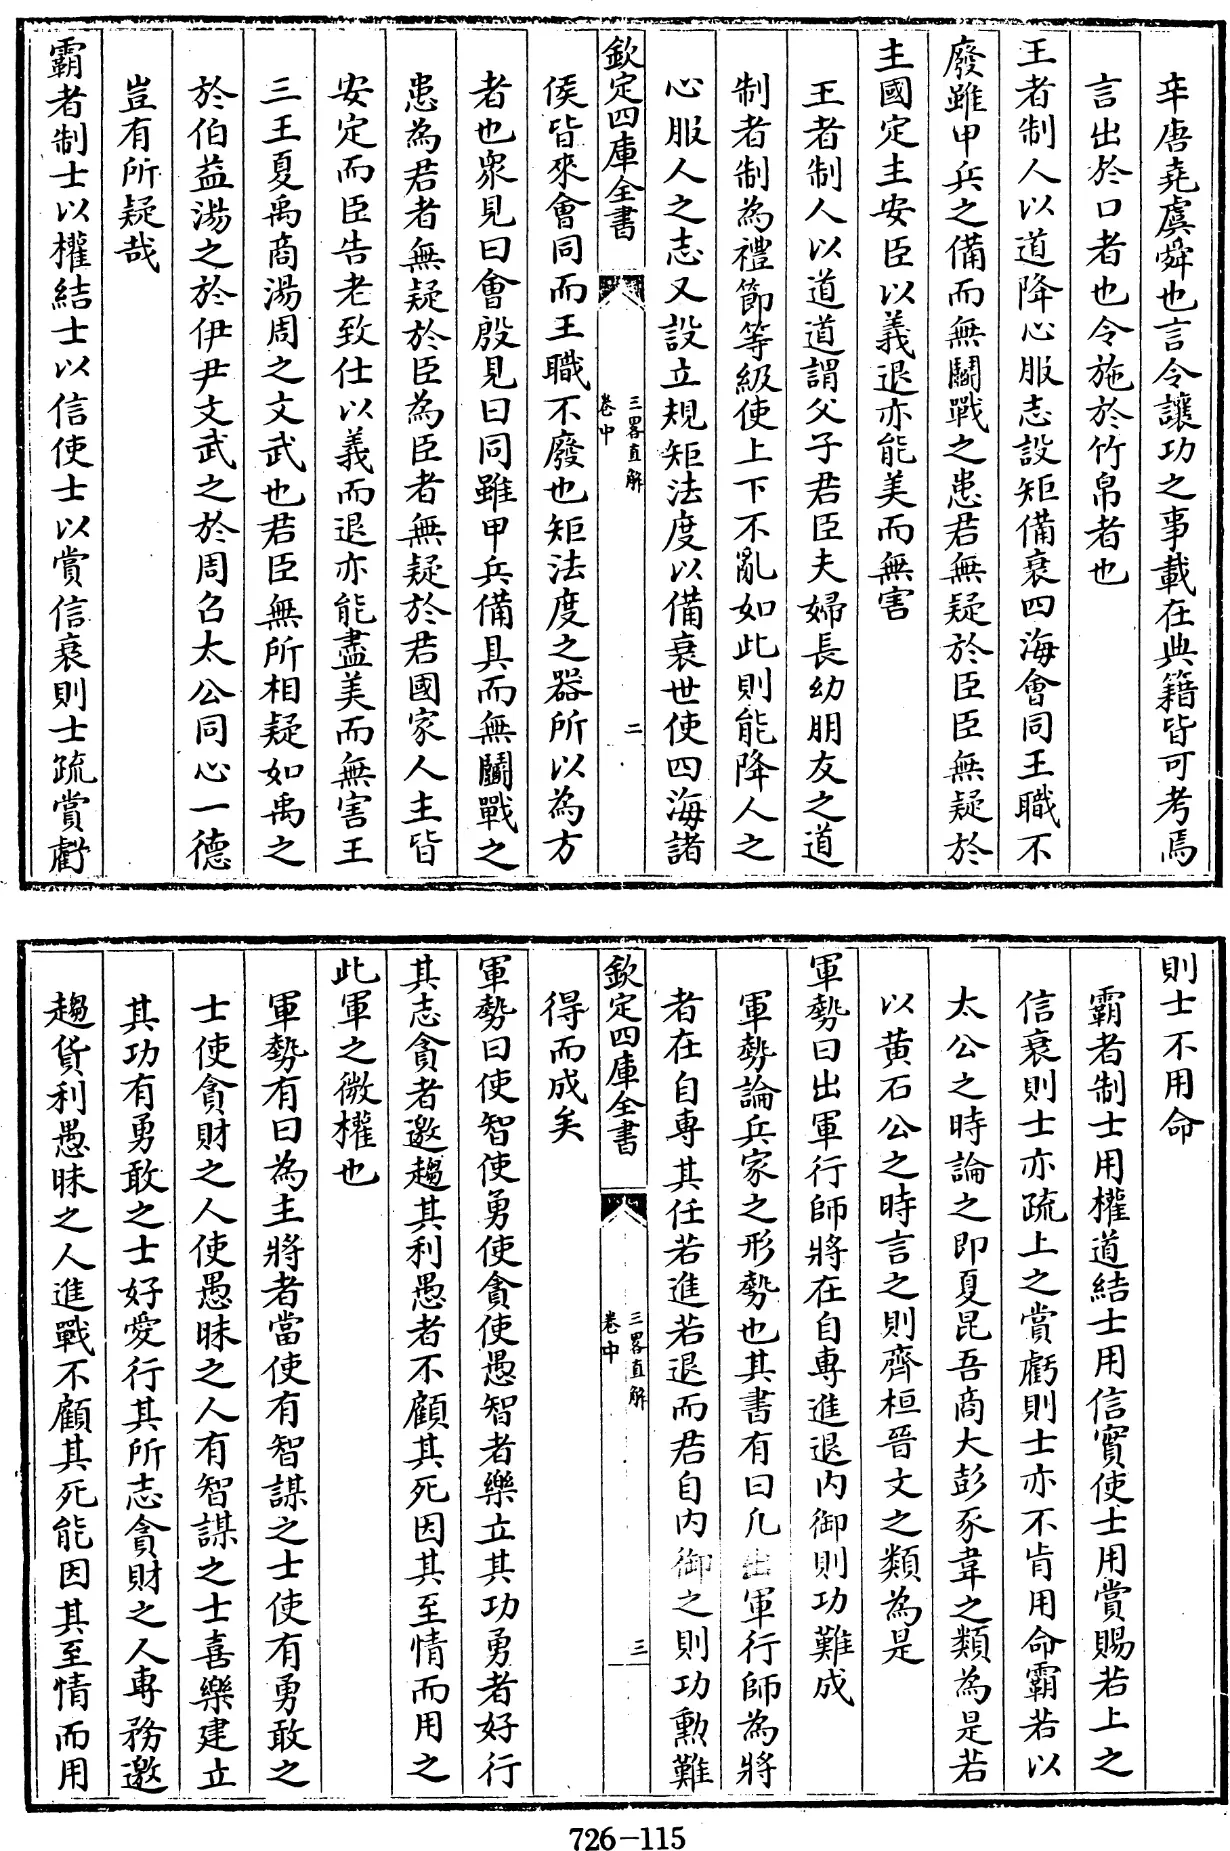 辛唐堯虞舜也言令讓功之事載在典籍皆可考焉
言出於口者也令施於竹帛者也
王者制人以道降心服志設矩備衰四海會同王職不
廢雖甲兵之備而無鬬戰之患君無疑於臣臣無疑於
主國定主安臣以義退亦能美而無害
王者制人以道道謂父子君臣夫婦長幼朋友之道
制者制為禮節等級使上下不亂如此則能降人之
心服人之志又設立規矩法度以備衰世使四海諸
欽定四庫全書
三畧直解
卷中
二
侯皆來會同而王職不廢也矩法度之器所以為方
者也衆見曰會殷見曰同雖甲兵備具而無鬬戰之
患為君者無疑於臣為臣者無疑於君國家人主皆
安定而臣告老致仕以義而退亦能盡美而無害王
三王夏禹商湯周之文武也君臣無所相疑如禹之
於伯益湯之於伊尹文武之於周召太公同心一德
豈有所疑哉
霸者制士以權結士以信使士以賞信衰則士疏賞虧
則士不用命
霸者制士用權道結士用信實使士用賞賜若上之
信衰則士亦疏上之賞虧則士亦不肯用命霸若以
太公之時論之即夏昆吾商大彭豕韋之類為是若
以黄石公之時言之則齊桓晉文之類為是
軍勢曰出軍行師將在自專進退内御則功難成
軍勢論兵家之形勢也其書有曰凡出軍行師為將
者在自專其任若進若退而君自内御之則功勲難
欽定四庫全書
三畧直解
卷中
三
得而成矣
軍勢曰使智使勇使貪使愚智者樂立其功勇者好行
其志貪者邀趨其利愚者不顧其死因其至情而用之
此軍之微權也
軍勢有曰為主將者當使有智謀之士使有勇敢之
士使貪財之人使愚昧之人有智謀之士喜樂建立
其功有勇敢之士好愛行其所志貪財之人専務邀
趨貨利愚昧之人進戰不顧其死能因其至情而用
726-115